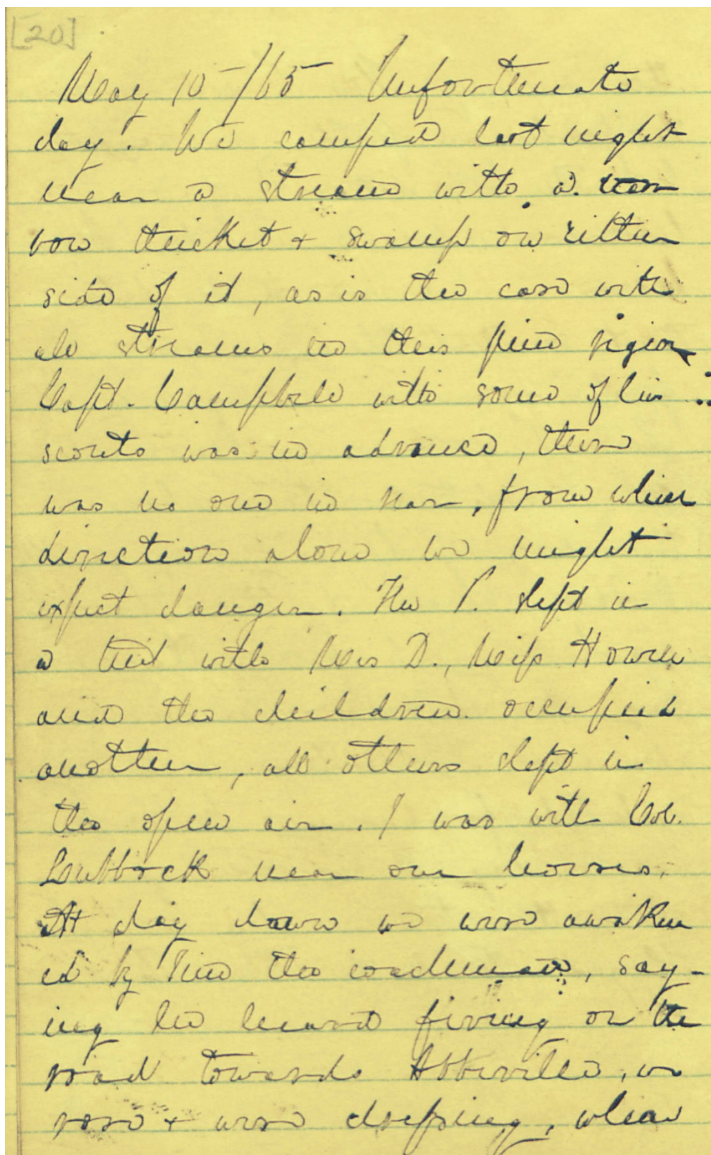 [20]
May 10 /65 Unfortunate
day. We camped last night
near a stream with a nar
row thicket & swamp on either
side of it, as is the case with
all streams in this pine region
Capt. Campbell with some of his
scouts was in advance, there
was no one in rear, from which
direction alone we might
expect danger. The P. slept in
a tent with Mrs D., Miss Howell
and the children occupied
another, all others slept in
the open air. I was with Col.
Lubbock near our horses.
At day dawn we were awaken
ed by Jim the coachman, say-
ing he heard firing on the
road towards Abbeville, we
rose & were dressing, when